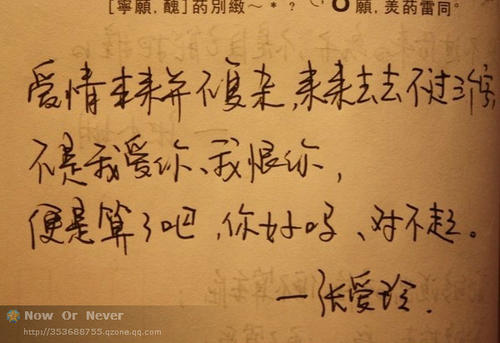 [寧願,醜]药別緻~*?
願,羡药雷同。
爱情本来并不复杂,来来去去不过三个字
不是我爱你、我恨你,
便是算了吧,你好吗、对不起。
—张爱玲.
Now Or Never
http://353688755.qzone.qq.com